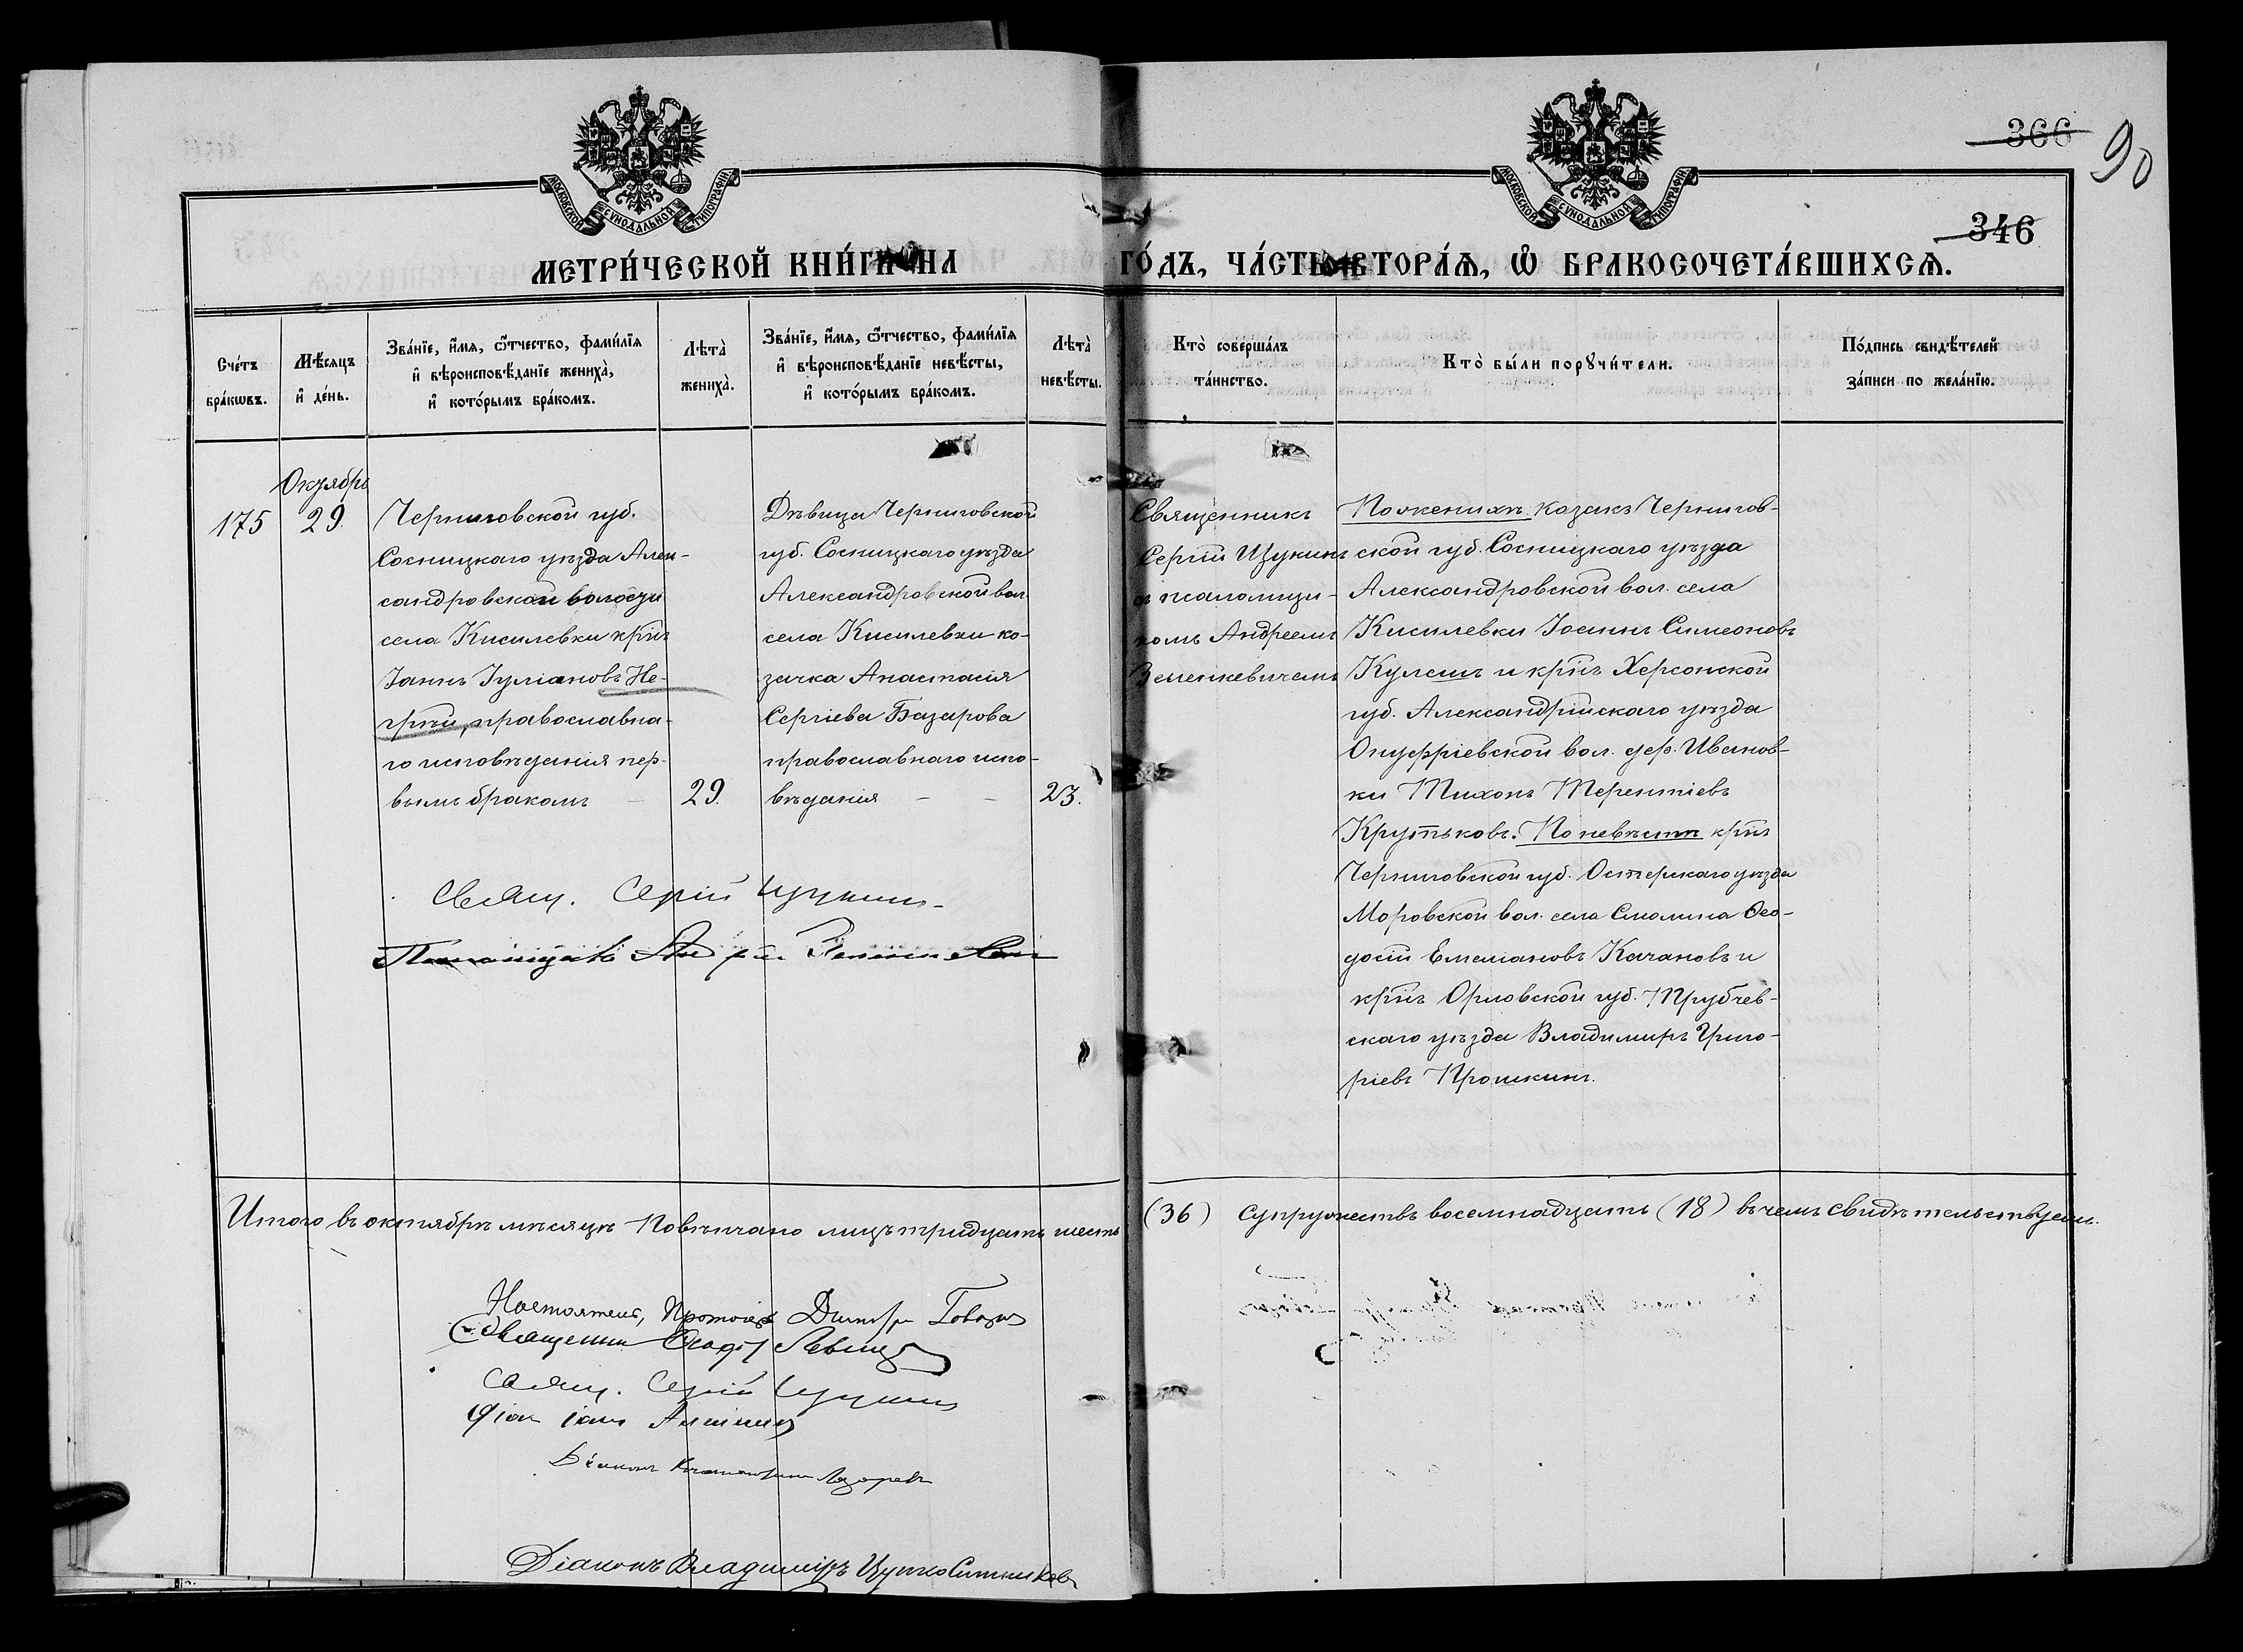 366
90
346
МОСКОВСКОЙ СѴНОДАЛЬНОЙ ТИПОГРАФІИ
МОСКОВСКОЙ СѴНОДАЛЬНОЙ ТИПОГРАФІИ
МЕТРИ́ЧЕСКОЙ КНИ́ГИ НА
ГО́ДЪ, ЧА́СТЬ ВТОРА́Ѧ, Ѽ БРАКОСОЧЕТА́ВШИХСѦ.
Сче́тъ
бра́кѡвъ.
Мѣ́сяцъ
и҆ де́нь.
Зва́нїе, и҆́мя, ѻ҆́тчество, фами́лїя
и҆ вѣроисповѣ́данїе жениха̀,
и҆ кото́рымъ бра́комъ.
Лѣта̀
жениха̀.
Зва́нїе, и҆́мя, ѻ҆́тчество, фами́лїя
и҆ вѣроисповѣ́данїе невѣ́сты,
и҆ кото́рымъ бра́комъ.
Лѣта̀
невѣ́сты.
Кто̀ соверша́лъ
та́инство.
Кто̀ бы́ли порꙋчи́тели.
По́дпись свидѣ́телей
за́писи по жела́нїю.
175
Октябрь
29.
Черниговской губ.
Сосницкаго уѣзда Алек-
сандровской волости
села Кисилевки крнъ
Іоаннъ Іуліановъ Не-
грѣй, православна-
го исповѣданія пер-
вымъ бракомъ
29.
Дѣвица Черниговской
губ. Сосницкаго уѣзда
Александровской вол.
села Кисилевки ко-
зачка Анастасія
Сергіева Базарова
православнаго испо-
вѣданія
23.
Священникъ
Сергій Щукинъ
съ псаломщи-
комъ Андреемъ
Зеленкевичемъ
По женихѣ козакъ Чернигов-
ской губ. Сосницкаго уѣзда
Александровской вол. села
Кисилевки Іоаннъ Симеоновъ
Кулешъ и крнъ Херсонской
губ. Александрійскаго уѣзда
Онуфріевской вол. дер. Иванов-
ки Тихонъ Терентіевъ
Крутьковъ. По невѣстѣ крнъ
Черниговской губ. Остерскаго уѣзда
Моровской вол. села Смолина Ѳео-
досій Емеліановъ Качановъ и
крнъ Орловской губ. Трубчев-
скаго уѣзда Владимиръ Григо-
ріевъ Прошкинъ.
Свящ. Сергій Щукинъ
Псаломщикъ Андрей
Итого въ октябрѣ мѣсяцѣ повѣнчано лицъ тридцать шесть (36) супружествъ восемнадцать (18) въ чемъ свидѣтельствуемъ.
Настоятель, Протоіерей Димитрій
Священникъ
Свящ. Сергій Щукинъ
Діаконъ
Діаконъ Лазаревъ
Діаконъ Владиміръ